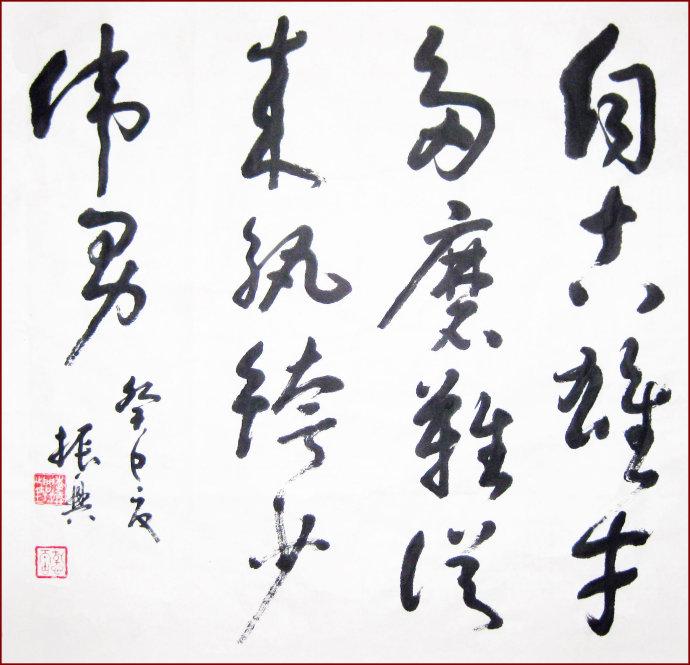 自古雄才
多磨難從
来紈絝少
伟男
癸巳夏
振興